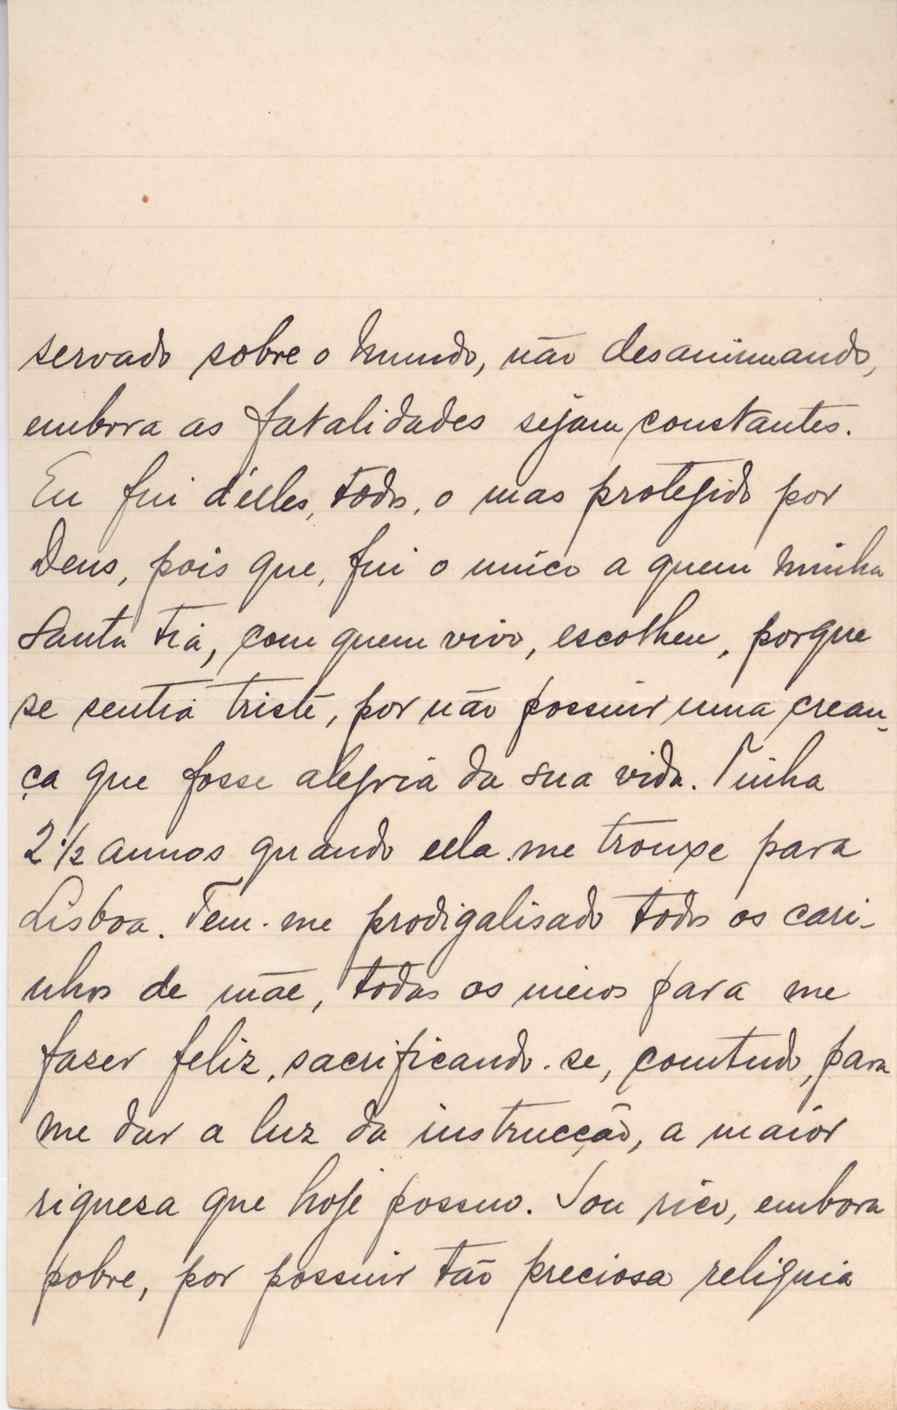 servado sobre o Mundo, não desanimando,
embora as fatalidades sejam constantes.
Eu fui d'elles, todos, o mas protegido por
Deus, pois que, fui o unico a quem Minha
Santa Tia, com quem vivo, escolheu, porque
se sentia triste, por não possuir uma crean-
ça que fosse alegria da sua vida. Tinha
2 1/2 annos quando ella me trouxe para
Lisboa. Tem-me prodigalisado todos os cari-
nhos de mãe, todos os meios para me
fazer feliz, sacrificando-se, comtudo, para
me dar a luz da instrucção, a maior
riquesa que hoje possuo. Sou rico, embora
pobre, por possuir tão preciosa reliquia